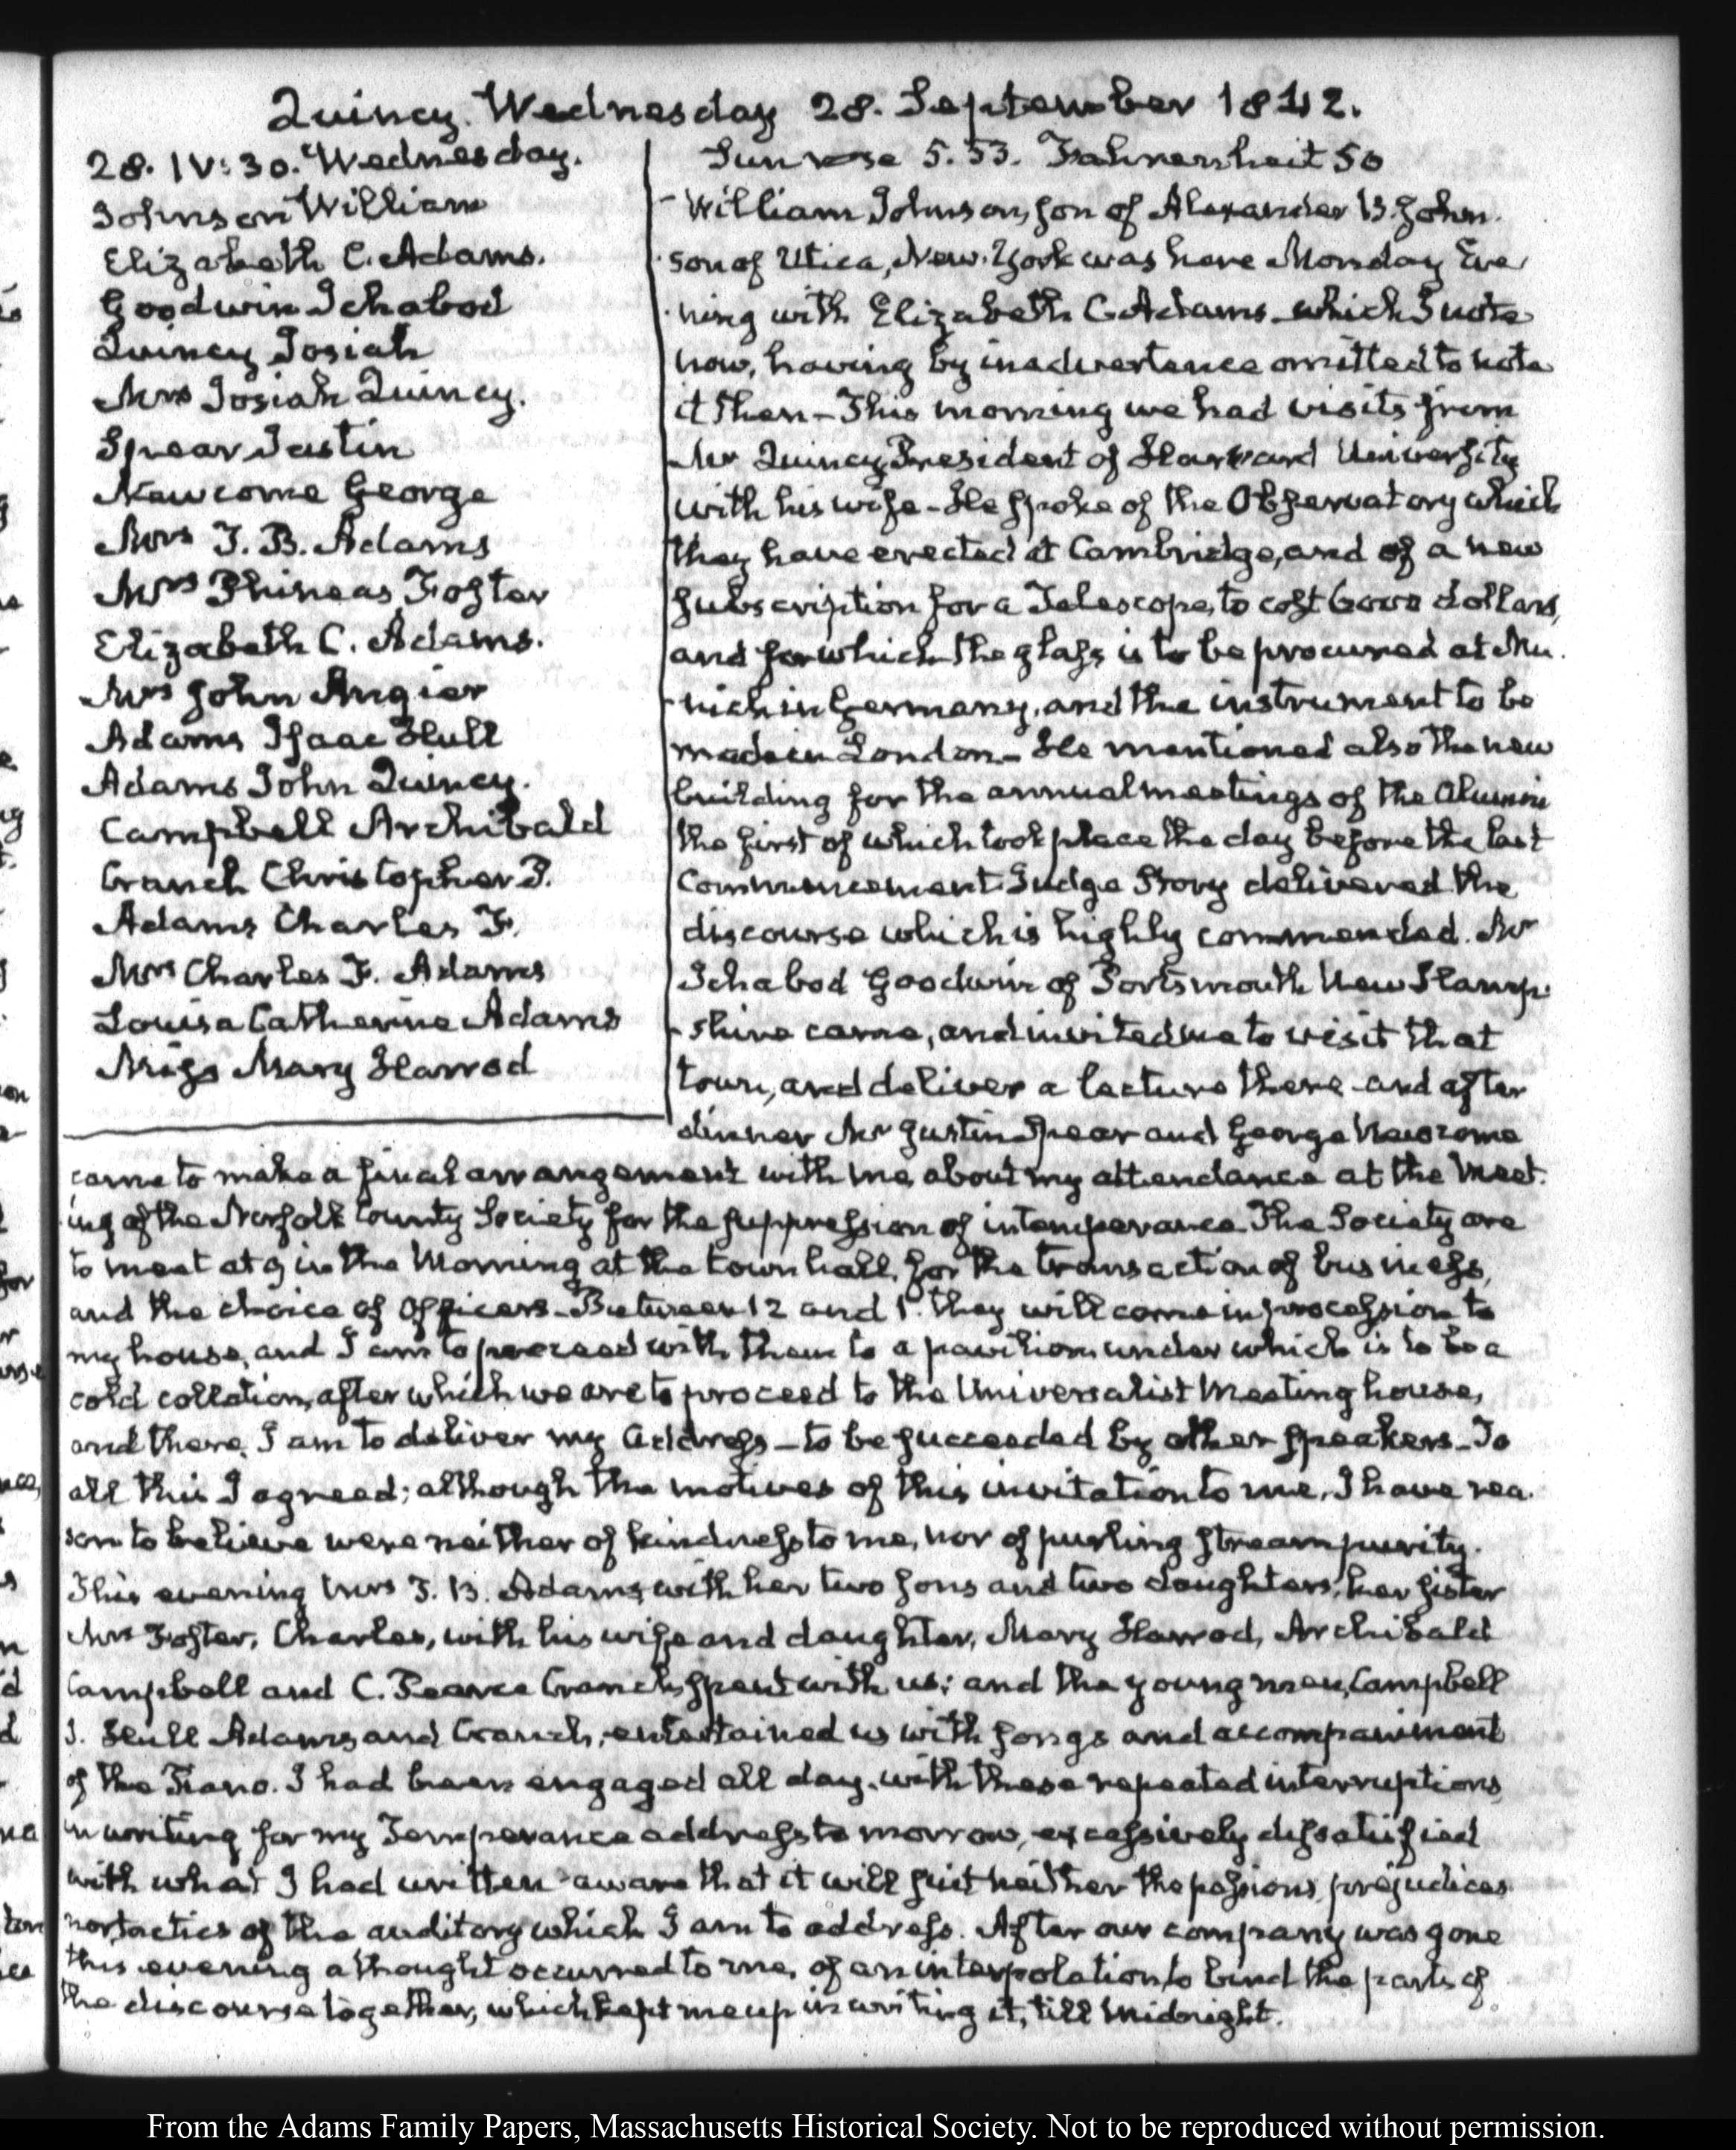 Quincy. Wednesday 28. September 1842.
28. IV:30. Wednesday.
Johnson William
Elizabeth C. Adams.
Goodwin Ichabod
Quincy Josiah
Mrs Josiah Quincy.
Spear Justin
Newcome George
Mrs T. B. Adams
Mrs Phineas Foster
Elizabeth C. Adams.
Mrs John Angier
Adams Isaac Hull
Adams John Quincy.
Campbell Archibald
Cranch Christopher P.
Adams Charles F.
Mrs Charles F. Adams
Louisa Catherine Adams
Miss Mary Harrod
Sun rose 5.53. Fahrenheit 50
William Johnson, son of Alexander B. John-
son of Utica, New-York was here Monday Eve
ning with Elizabeth C Adams which I note
now, having by inadvertence omitted to note
it then — This morning we had visits from
Mr Quincy President of Harvard University
with his wife — He spoke of the Observatory which
they have erected at Cambridge, and of a new
subscription for a Telescope, to cost 6000 dollars,
and for which the glass is to be procured at Mu-
nich in Germany, and the instrument to be
made in London — He mentioned also the new
building for the annual meetings of the Alumni
the first of which took place the day before the last
Commencement. Judge Story delivered the
discourse which is highly commended. Mr
Ichabod Goodwin of Portsmouth New Hamp-
shire came, and invited me to visit that
town, and deliver a lecture there — and after
dinner Mr Justin Spear and George Newcome
came to make a final arrangement with me, about my attendance at the Meet-
ing of the Norfolk County Society for the suppression of intemperance. The Society are
to meet at 9 in the Morning at the town hall, for the transaction of business,
and the choice of Officers — Between 12 and 1. they will come in procession to
my house, and I am to proceed with them to a pavilion under which is to be a
cold collation, after which we are to proceed to the Universalist Meeting house,
and there, I am to deliver my Address — to be succeeded by other speakers — To
all this I agreed; although the motives of this invitation to me, I have rea-
son to believe were neither of kindness to me, nor of purling stream purity.
This evening Mrs T. B. Adams, with her two sons and two daughters, her sister
Mrs Foster, Charles, with his wife and daughter, Mary Harrod, Archibald
Campbell and C. Pearce Cranch, spent with us; and the young men, Campbell
I. Hull Adams and Cranch, entertained us with songs and accompaniment
of the Piano. I had been engaged all day, with these repeated interruptions,
in writing for my Temperance address to morrow, excessively dissatisfied
with what I had written — aware that it will suit neither the passions, prejudices
nor tactics of the auditory which I am to address. After our company was gone
this evening a thought occurred to me, of an interpolation to bind the parts of
the discourse together, which kept me up in writing it, till Midnight.
From the Adams Family Papers, Massachusetts Historical Society. Not to be reproduced without permission.